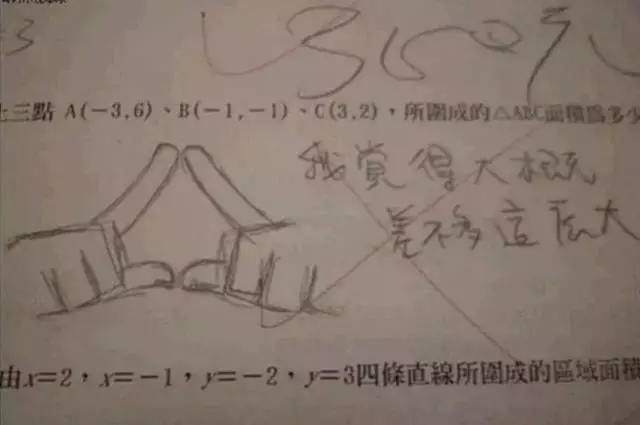 3
上三點 A(−3,6)、B(−1,−1)、C(3,2)，所圍成的△ABC面積為多少
我覺得大概
差不多這麼大
由x=2，x=−1，y=−2，y=3四條直線所圍成的區域面積